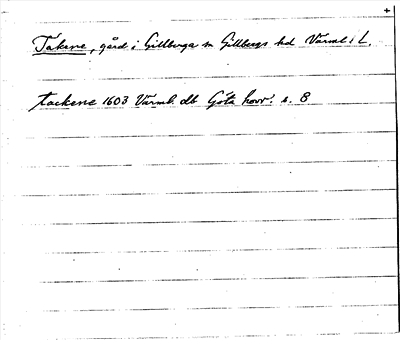 +
Takene, gård i Gillberga sn Gillbergs hd Värml. L.
tackene 1603 Värml. db Göta hovr. s. 8